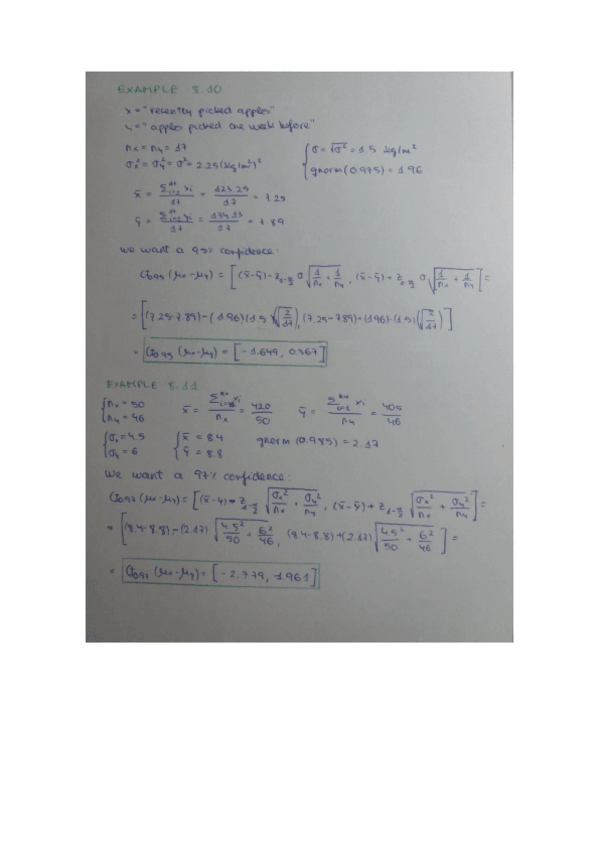 EXAMPLE 8.10
x = "recently picked apples"
y = "apples picked one week before"
nx = ny = 17
σx² = σy² = σ² = 2.25 (kg/m²)²
{ σ = √σ² = 1.5 kg/m²
qnorm (0.975) = 1.96
x̄ = Σxi / 17 = 123.25 / 17 = 7.25
ȳ = Σyi / 17 = 134.13 / 17 = 7.89
We want a 95% confidence:
CI0.95 (μx-μy) = [(x̄-ȳ) - z1-α/2 σ √(1/nx + 1/ny), (x̄-ȳ) + z1-α/2 σ √(1/nx + 1/ny)] =
= [(7.25-7.89) - (1.96)(1.5)(√(2/17)), (7.25-7.89) + (1.96)·(1.5)(√(2/17))]
= CI0.95 (μx-μy) = [-1.649, 0.367]
EXAMPLE 8.11
{ nx = 50
ny = 46
x̄ = Σxi / nx = 420 / 50
ȳ = Σxi / ny = 405 / 46
{ σx = 4.5
σy = 6
{ x̄ = 8.4
ȳ = 8.8
qnorm (0.985) = 2.17
We want a 97% confidence:
CI0.97 (μx-μy) = [(x̄-ȳ) - z1-α/2 √(σx²/nx + σy²/ny), (x̄-ȳ) + z1-α/2 √(σx²/nx + σy²/ny)] =
= [(8.4-8.8) - (2.17) √(4.5²/50 + 6²/46), (8.4-8.8) + (2.17) √(4.5²/50 + 6²/46)] =
= CI0.97 (μx-μy) = [-2.779, 1.961]